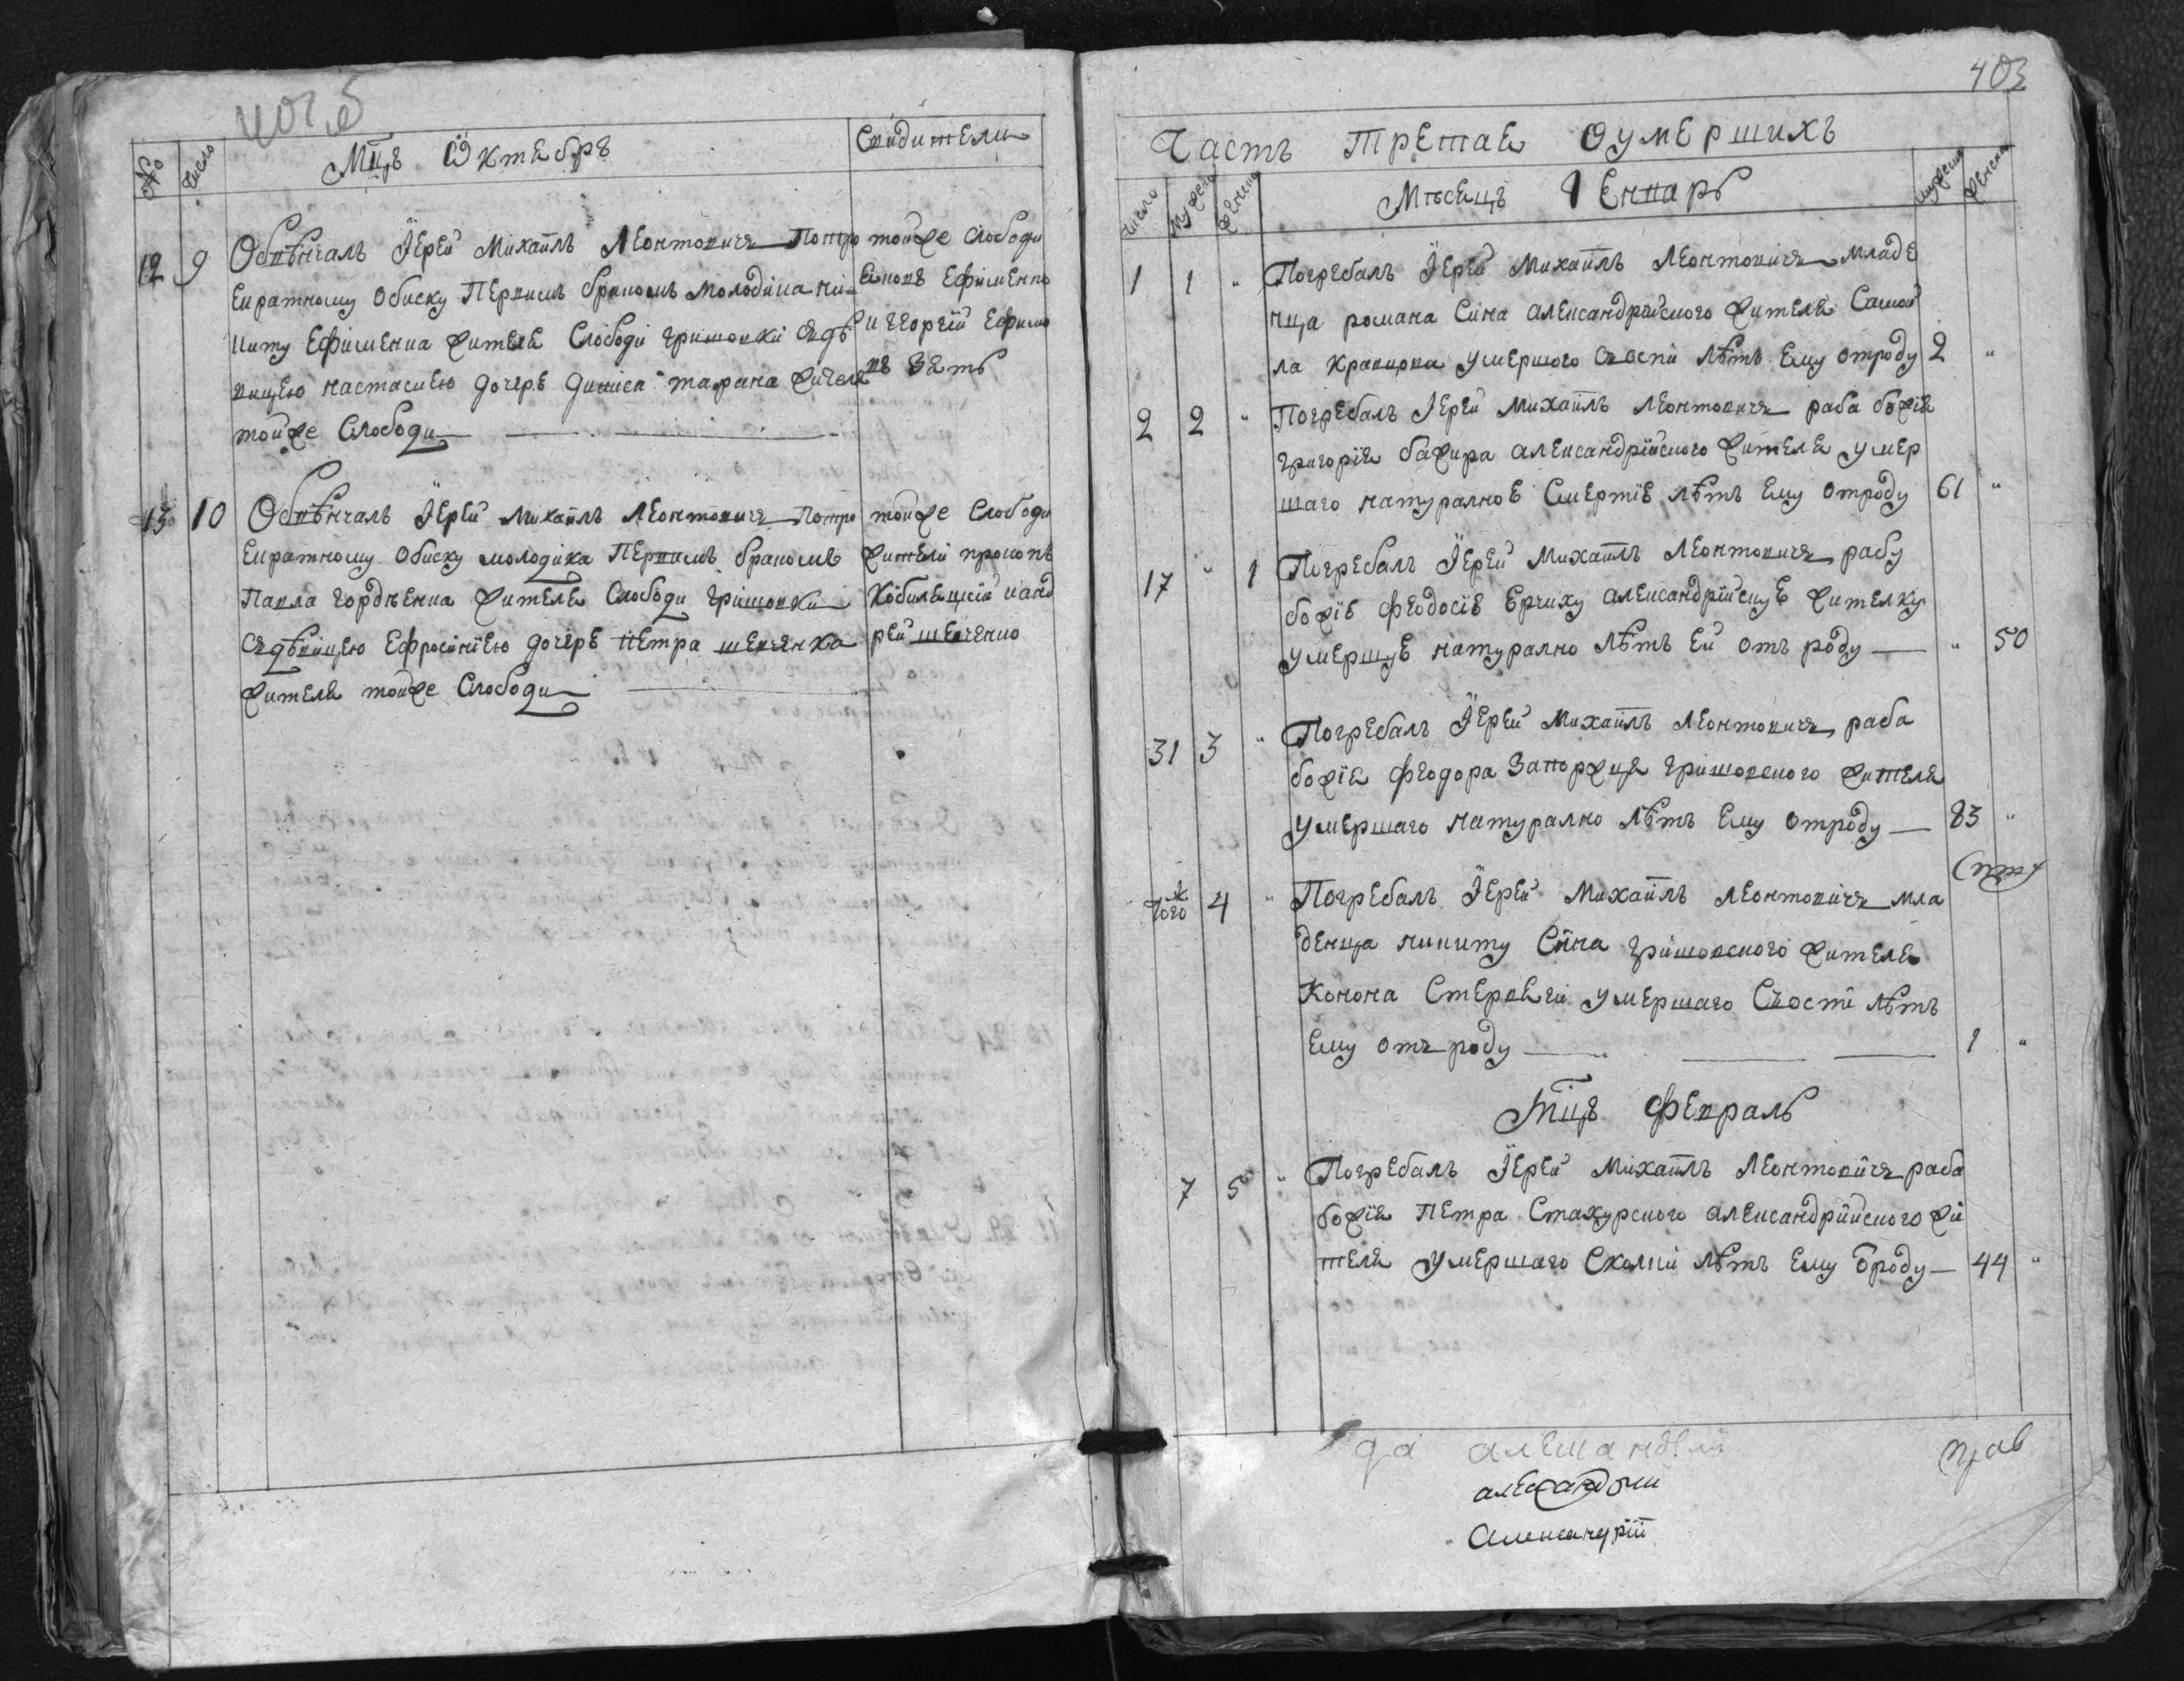 №
число
Мцъ Октябръ
Свидители
12 9
Обвѣнчалъ Іерей Михаилъ Леонтовичъ Потро
екратному обиску Первимъ бракомъ молодика ни
киту Ефименка жителя Слободи Гришовки здѣ
вицею настасиею дочеръ дениса тарана жителя
тойже Слободи
тойже слободи
Ефименко
и Георгій Ефимо
въ зять
13 10
Обвѣнчалъ Іерей Михаилъ Леонтовичъ Потро
екратному обиску молодика Первимъ бракомъ
Павла гордѣенка жителя Слободи Гришовки
здѣвицею Ефросиніею дочеръ Петра шевченка
жителя тойже Слободи
тойже Слободи
жители прокопъ
Кобилецкій и анд
рей шевченко
403
Часть третая оумершихъ
число
мужеска
женска
Мѣсецъ Геннарь
мужеска
женска
1 1 "
Погребалъ Іерей Михаилъ Леонтовичъ младе
нца романа Сина александрійского жителя Самой
ла умершого зоспи лѣтъ ему отроду 2 "
2 2 "
Погребалъ Іерей Михаилъ Леонтовичъ раба божія
григорія бажира александрійского жителя умер
шаго натуралноѣ Смертіѣ лѣтъ Ему отроду 61 "
17 " 1
Погребалъ Іерей Михаилъ Леонтовичъ рабу
божіѣ феодосіѣ Ерчиху александрійскуѣ жителку
умершуѣ натурално лѣтъ Ей отъ роду " 50
31 3 "
Погребалъ Іерей Михаилъ Леонтовичъ раба
божія феодора Запорожця гришовского жителя
умершаго натурално лѣтъ Ему отроду 83 "
тогож 4 "
Погребалъ Іерей Михаилъ Леонтовичъ мла
денца никиту Сина гришовского жителя
Конона умершаго Зъоспи лѣтъ
Ему отъ роду 1 "
Мцъ Февраль
7 5 "
Погребалъ Іерей Михаилъ Леонтовичъ раба
божія Петра Стахурского александрійского жи
теля умершаго Сколки лѣтъ Ему ѿроду 44 "
да